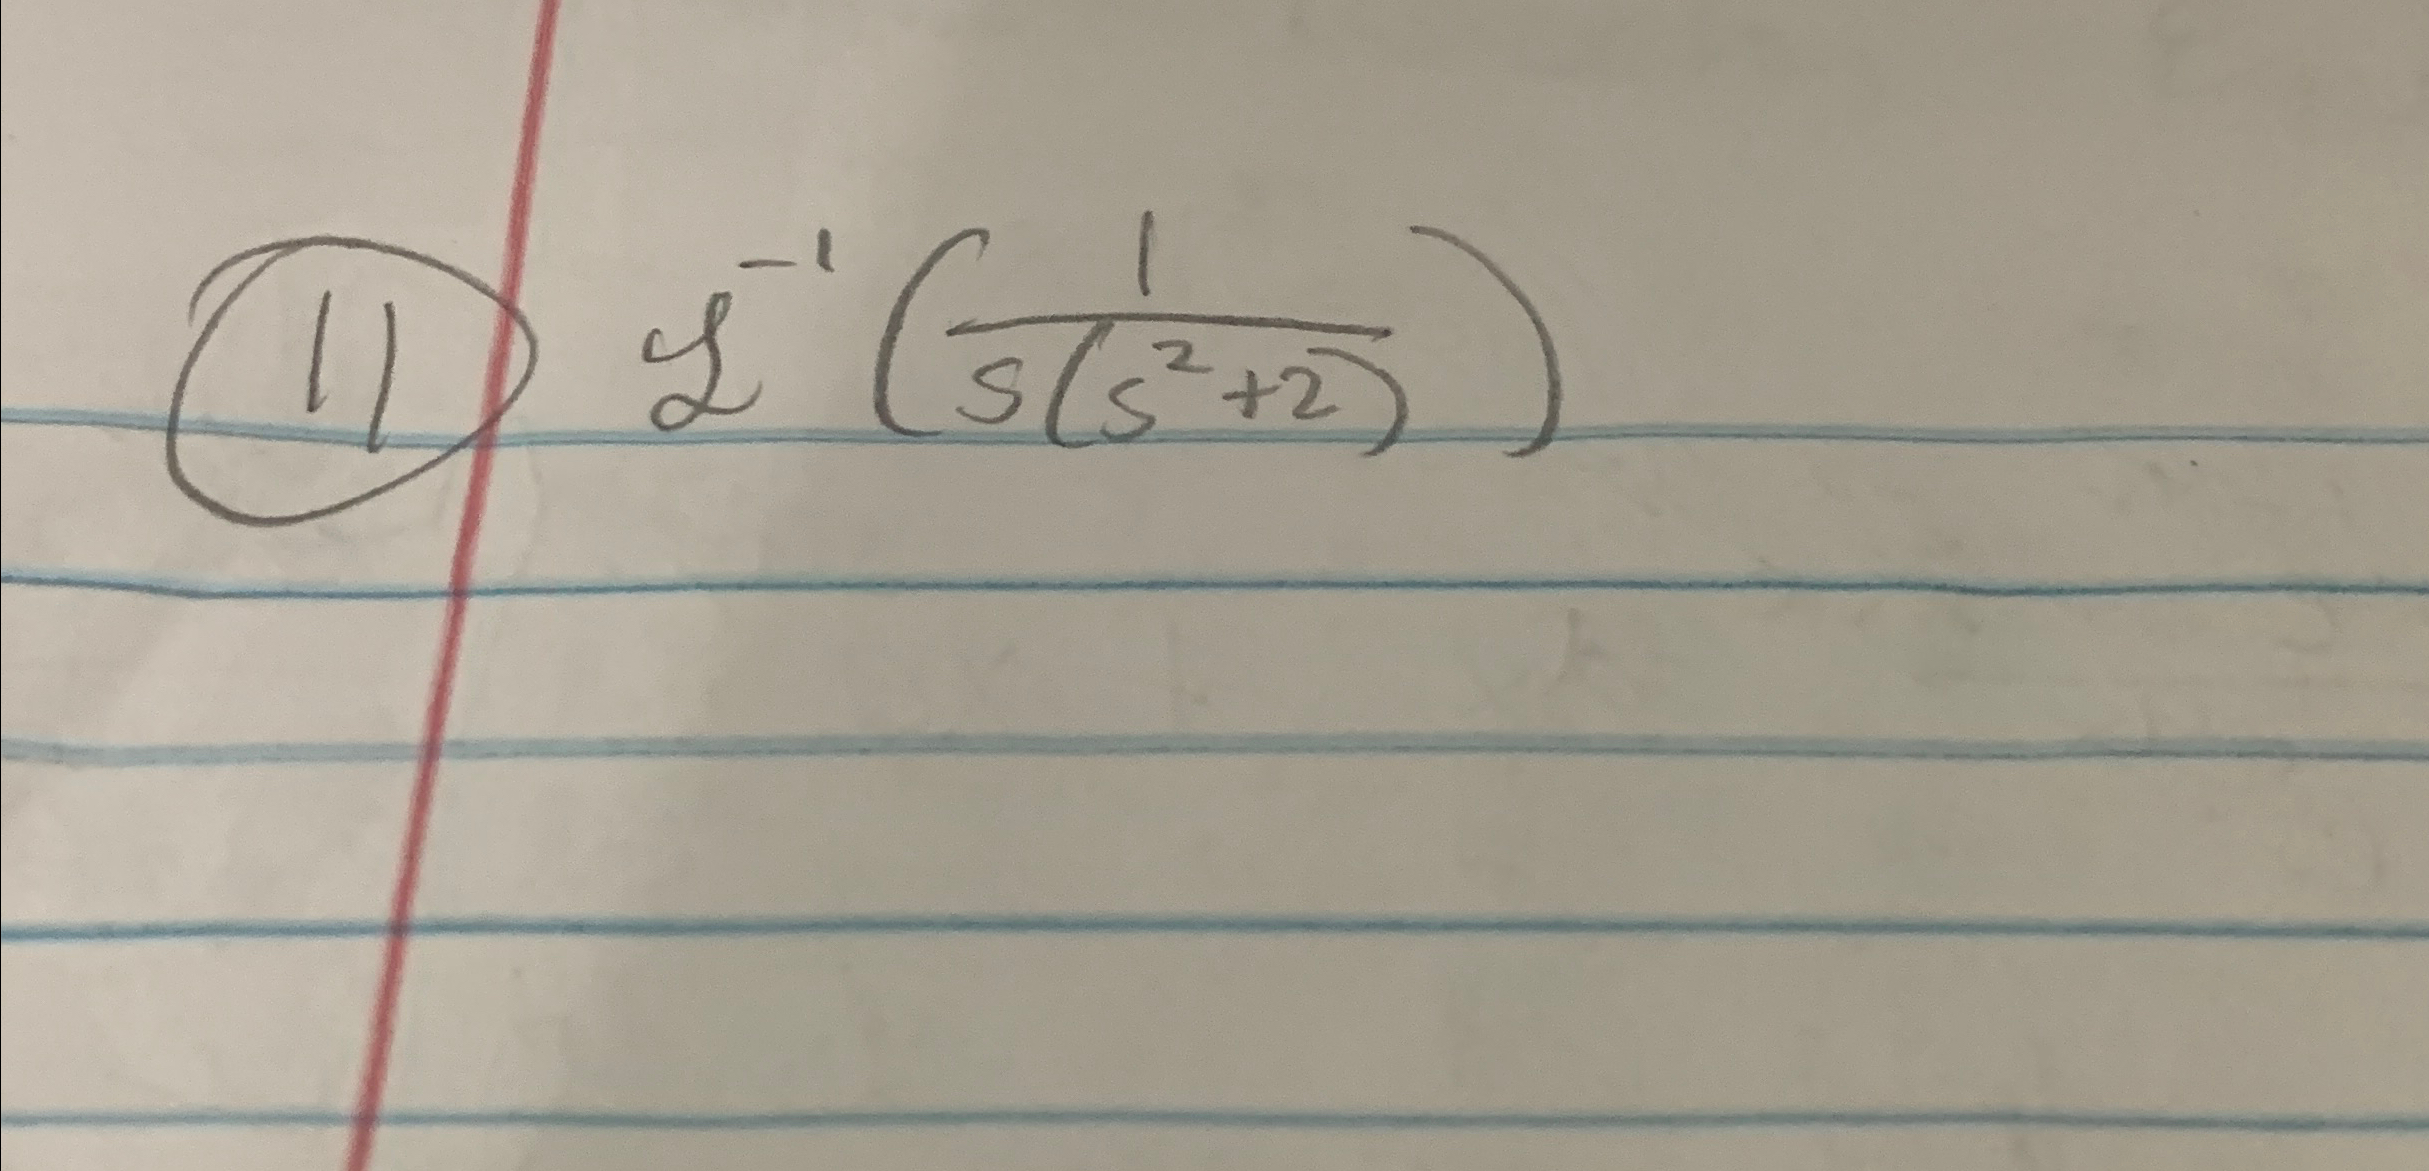 11 ℒ⁻¹(1/(s(s²+2)))